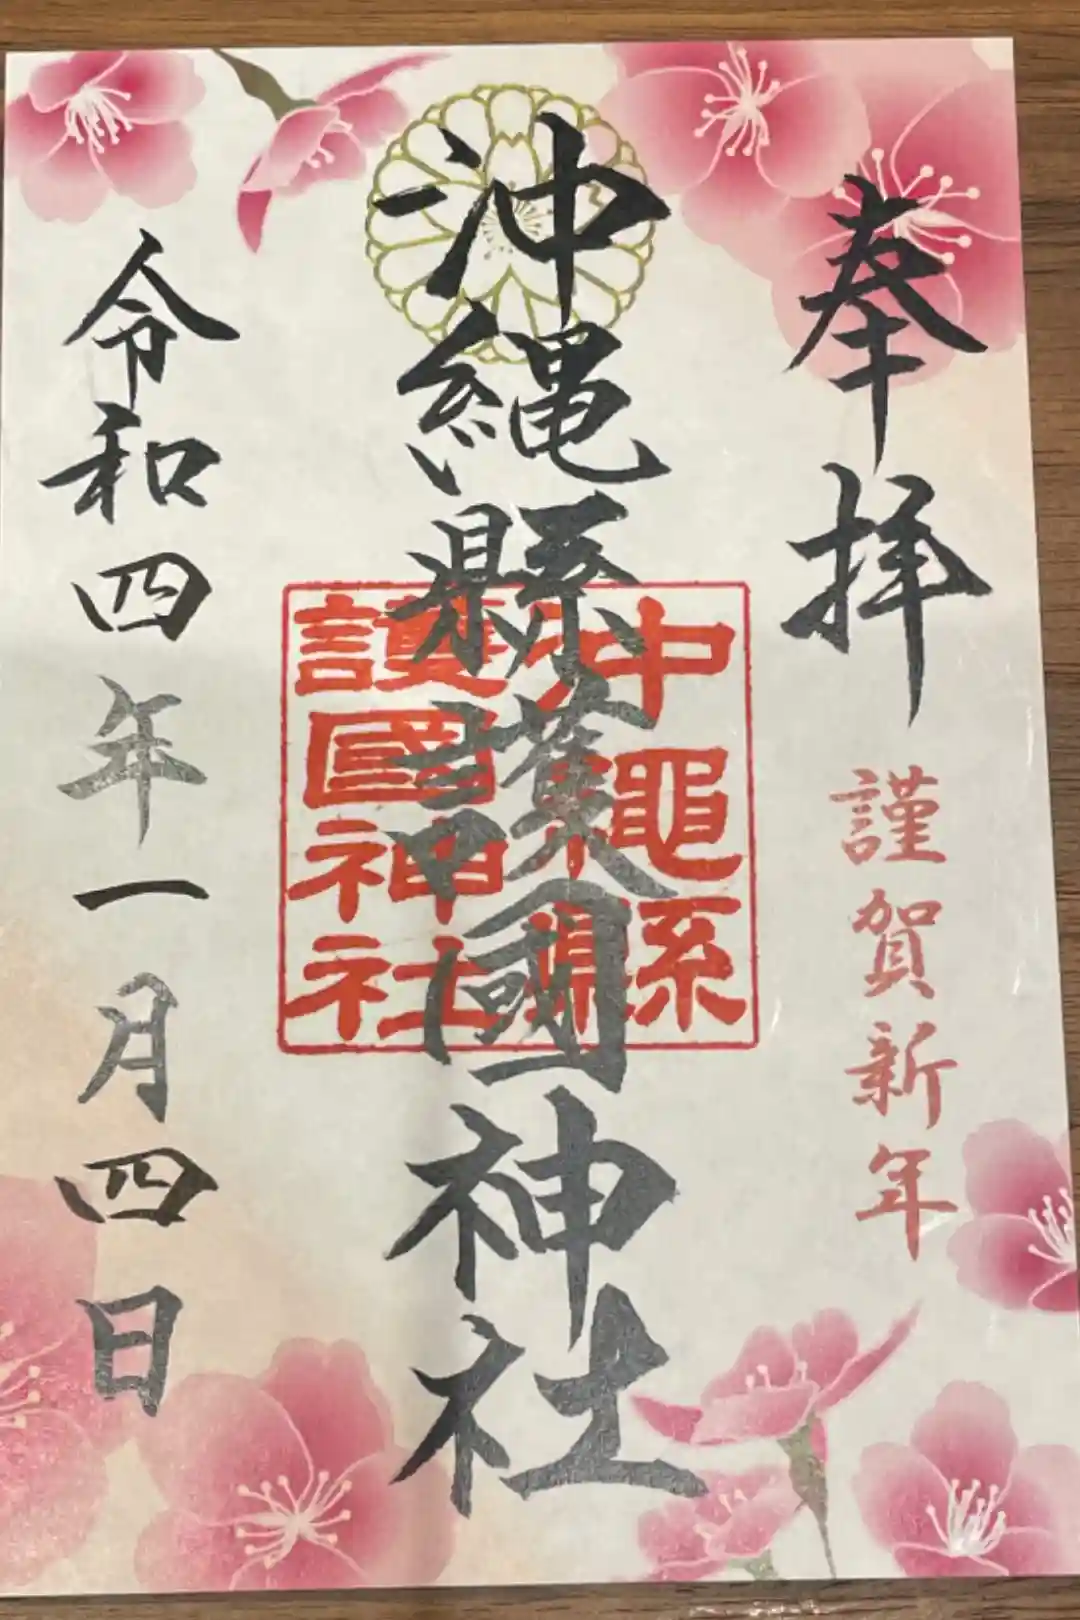 奉拝
謹賀新年
沖縄縣護國神社
沖縄縣
護國神社
令和四年一月四日